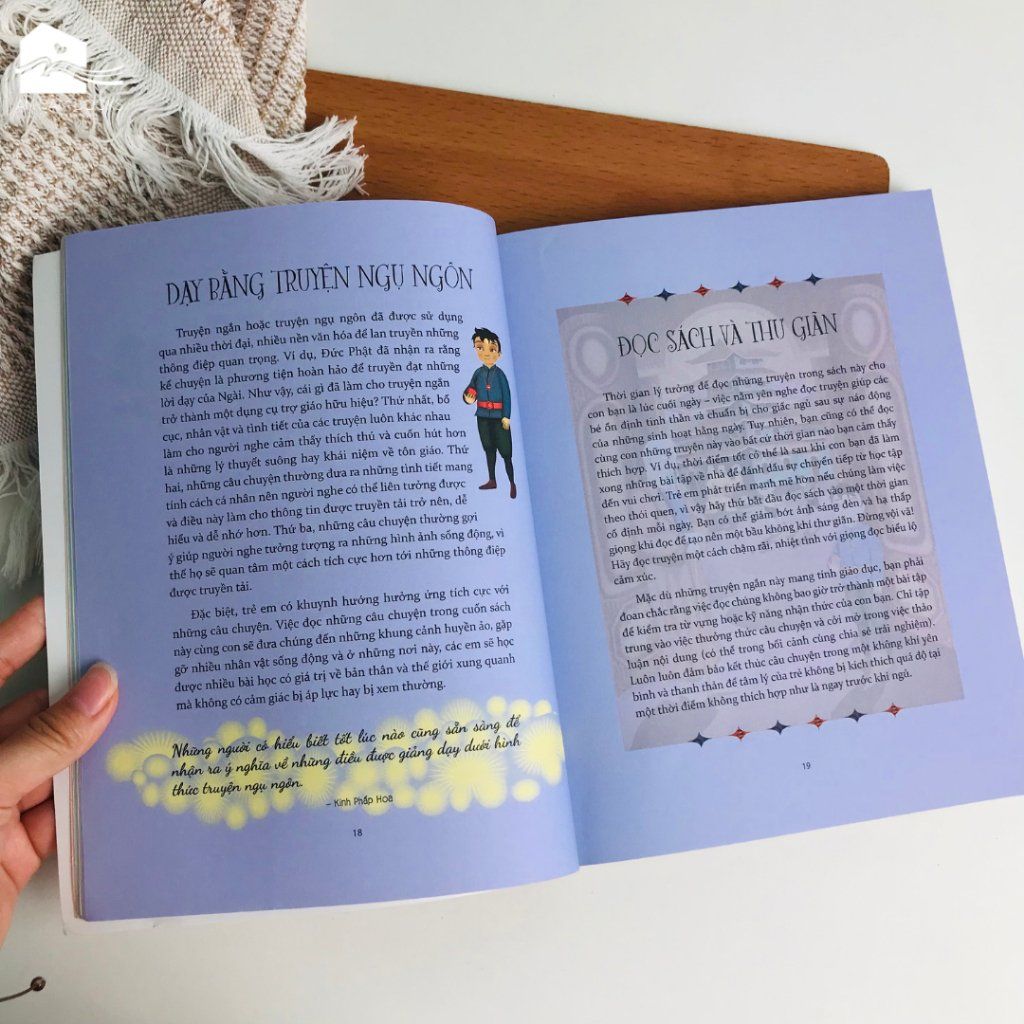 DẠY BẰNG TRUYỆN NGỤ NGÔN
Truyện ngắn hoặc truyện ngụ ngôn đã được sử dụng
qua nhiều thời đại, nhiều nền văn hóa để lan truyền những
thông điệp quan trọng. Ví dụ, Đức Phật đã nhận ra rằng
kể chuyện là phương tiện hoàn hảo để truyền đạt những
lời dạy của Ngài. Như vậy, cái gì đã làm cho truyện ngắn
trở thành một dụng cụ trợ giáo hữu hiệu? Thứ nhất, bố
cục, nhân vật và tình tiết của các truyện luôn khác nhau
làm cho người nghe cảm thấy thích thú và cuốn hút hơn
là những lý thuyết suông hay khái niệm về tôn giáo. Thứ
hai, những câu chuyện thường đưa ra những tình tiết mang
tính cách cá nhân nên người nghe có thể liên tưởng được
và điều này làm cho thông tin được truyền tải trở nên, dễ
hiểu và dễ nhớ hơn. Thứ ba, những câu chuyện thường gợi
ý giúp người nghe tưởng tượng ra những hình ảnh sống động, vì
thế họ sẽ quan tâm một cách tích cực hơn tới những thông điệp
được truyền tải.
Đặc biệt, trẻ em có khuynh hướng hưởng ứng tích cực với
những câu chuyện. Việc đọc những câu chuyện trong cuốn sách
này cùng con sẽ đưa chúng đến những khung cảnh huyền ảo, gặp
gỡ nhiều nhân vật sống động và ở những nơi này, các em sẽ học
được nhiều bài học có giá trị về bản thân và thế giới xung quanh
mà không có cảm giác bị áp lực hay bị xem thường.
Những người có hiểu biết tốt lúc nào cũng sẵn sàng để
nhận ra ý nghĩa về những điều được giảng dạy dưới hình
thức truyện ngụ ngôn.
– Kinh Pháp Hoa
18
ĐỌC SÁCH VÀ THƯ GIÃN
Thời gian lý tưởng để đọc những truyện trong sách này cho
con bạn là lúc cuối ngày – việc nằm yên nghe đọc truyện giúp các
bé ổn định tinh thần và chuẩn bị cho giấc ngủ sau sự náo động
của những sinh hoạt hằng ngày. Tuy nhiên, bạn cũng có thể đọc
cùng con những truyện này vào bất cứ thời gian nào bạn cảm thấy
thích hợp. Ví dụ, thời điểm tốt có thể là sau khi con bạn đã làm
xong những bài tập về nhà để đánh dấu sự chuyển tiếp từ học tập
đến vui chơi. Trẻ em phát triển mạnh mẽ hơn nếu chúng làm việc
theo thói quen, vì vậy hãy thử bắt đầu đọc sách vào một thời gian
cố định mỗi ngày. Bạn có thể giảm bớt ánh sáng đèn và hạ thấp
giọng khi đọc để tạo nên một bầu không khí thư giãn. Đừng vội vã!
Hãy đọc truyện một cách chậm rãi, nhiệt tình với giọng đọc biểu lộ
cảm xúc.
Mặc dù những truyện ngắn này mang tính giáo dục, bạn phải
đoan chắc rằng việc đọc chúng không bao giờ trở thành một bài tập
để kiểm tra từ vựng hoặc kỹ năng nhận thức của con bạn. Chỉ tập
trung vào việc thưởng thức câu chuyện và cởi mở trong việc thảo
luận nội dung (có thể trong bối cảnh cùng chia sẻ trải nghiệm).
Luôn luôn đảm bảo kết thúc câu chuyện trong một không khí yên
bình và thanh thản để tâm lý của trẻ không bị kích thích quá độ tại
một thời điểm không thích hợp như là ngay trước khi ngủ.
19